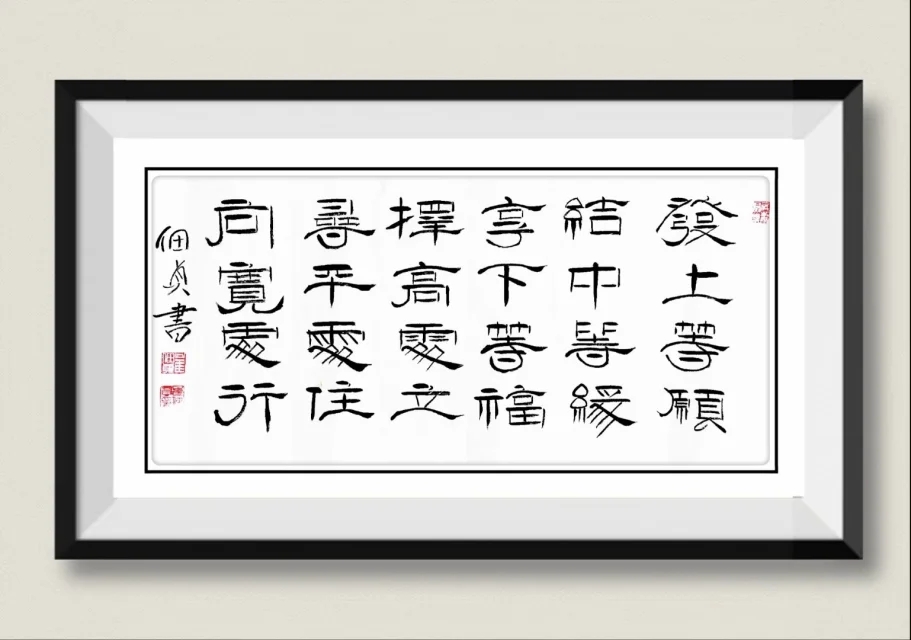 發上等願
結中等緣
享下等福
擇高處立
尋平處住
向寬處行
佃貞書